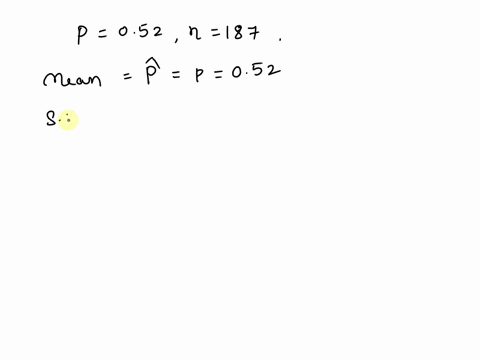 p = 0.52 , n = 187 .
mean = p̂ = p = 0.52
S.